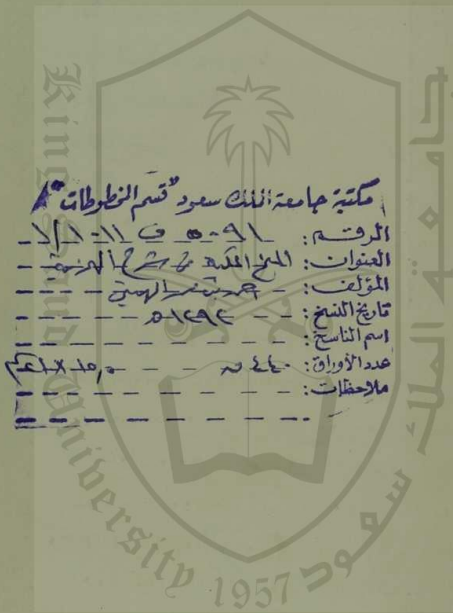 مكتبة جامعة الملك سعود "قسم المخطوطات"
الرقم: ٥٠٩١ ف ١١٠١/١
العنوان: المنح المكية في شرح الهمزية
المؤلف: احمد بن الهيتمي
تاريخ النسخ: ١٢٩٢ه
اسم الناسخ:
عدد الأوراق: ٤٤٠
ملاحظات:
King Saud University 1957
جامعة الملك سعود